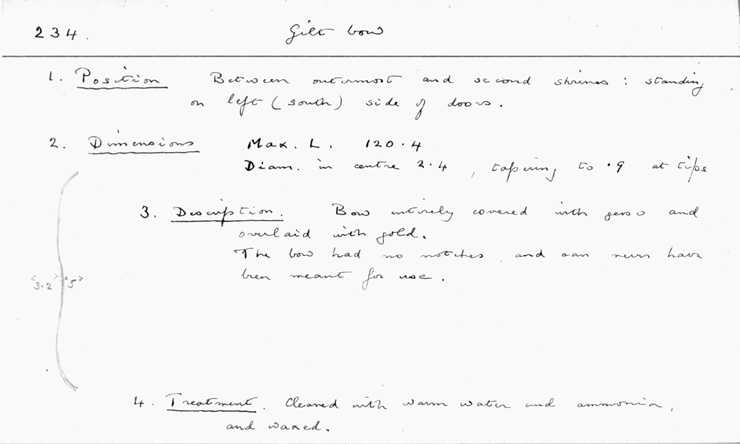 234. Gilt bow
1. Position Between outermost and second shrines : standing
on left (south) side of doors.
2. Dimensions Max. L. 120.4
Diam. in centre 2.4 , tapering to .9 at tips
3. Description. Bow entirely covered with gesso and
overlaid with gold.
The bow had no notches and can never have
been meant for use.
<3.2> <5>
4. Treatment. Cleaned with warm water and ammonia,
and waxed.